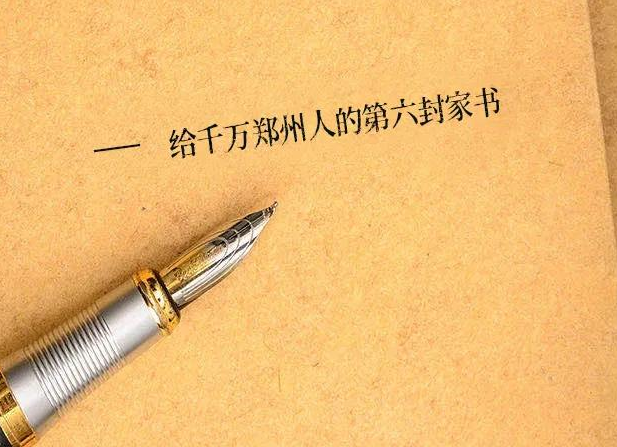 — 给千万郑州人的第六封家书